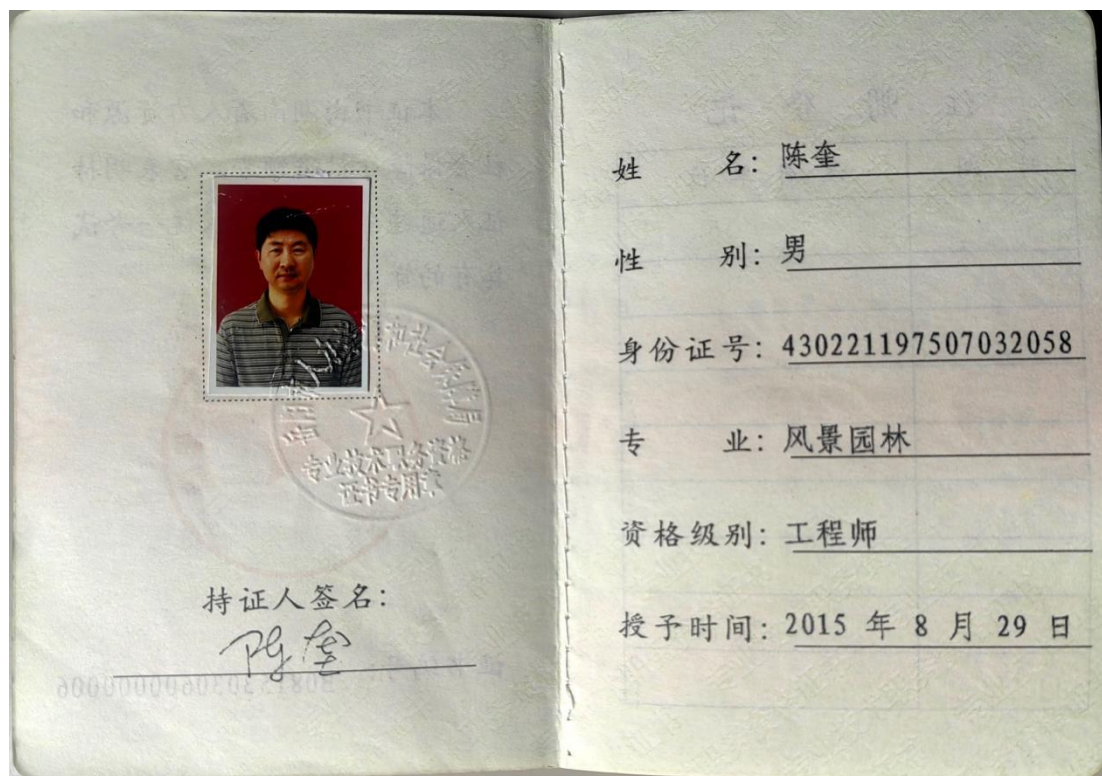 专业技术职务资格
证书专用章
持证人签名:
陈奎
姓名: 陈奎
性别: 男
身份证号: 430221197507032058
专业: 风景园林
资格级别: 工程师
授予时间: 2015 年 8 月 29 日